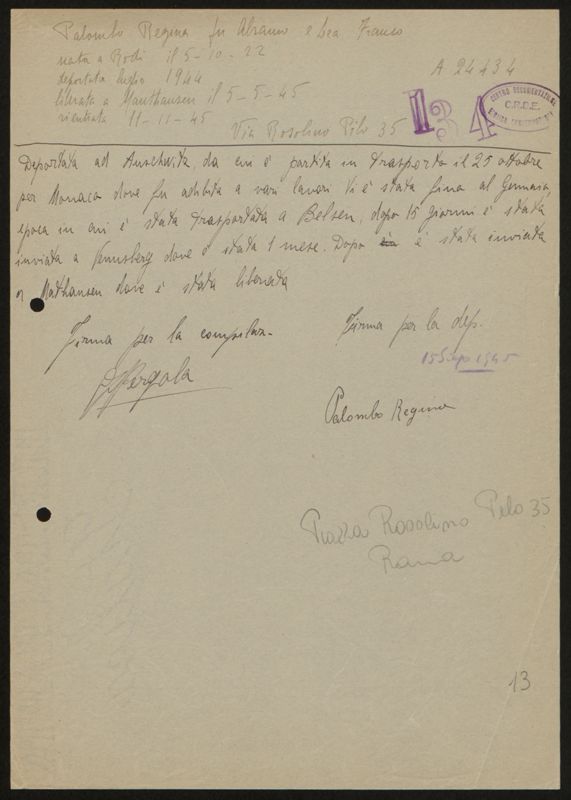 Palombo Regina fu Abramo e Lea Franco
nata a Rodi il 5-10-22
deportata luglio 1944
A 24434
liberata a Mauthausen il 5-5-45
rientrata 11-11-45
Via Rosolino Pilo 35
134
C.R.D.E.
Deportata ad Auschwitz, da cui è partita in trasporto il 25 ottobre
per Monaco dove fu adibita a vari lavori Vi è stata fino al Gennaio,
epoca in cui è stata trasportata a Belsen, dopo 15 giorni è stata
inviata a dove è stata 1 mese. Dopo è stata inviata
a Mathausen dove è stata liberata
Firma per la compilaz.
Firma per la dep.
1945
Palombo Regina
Piazza Rosolino Pilo 35
Roma
13